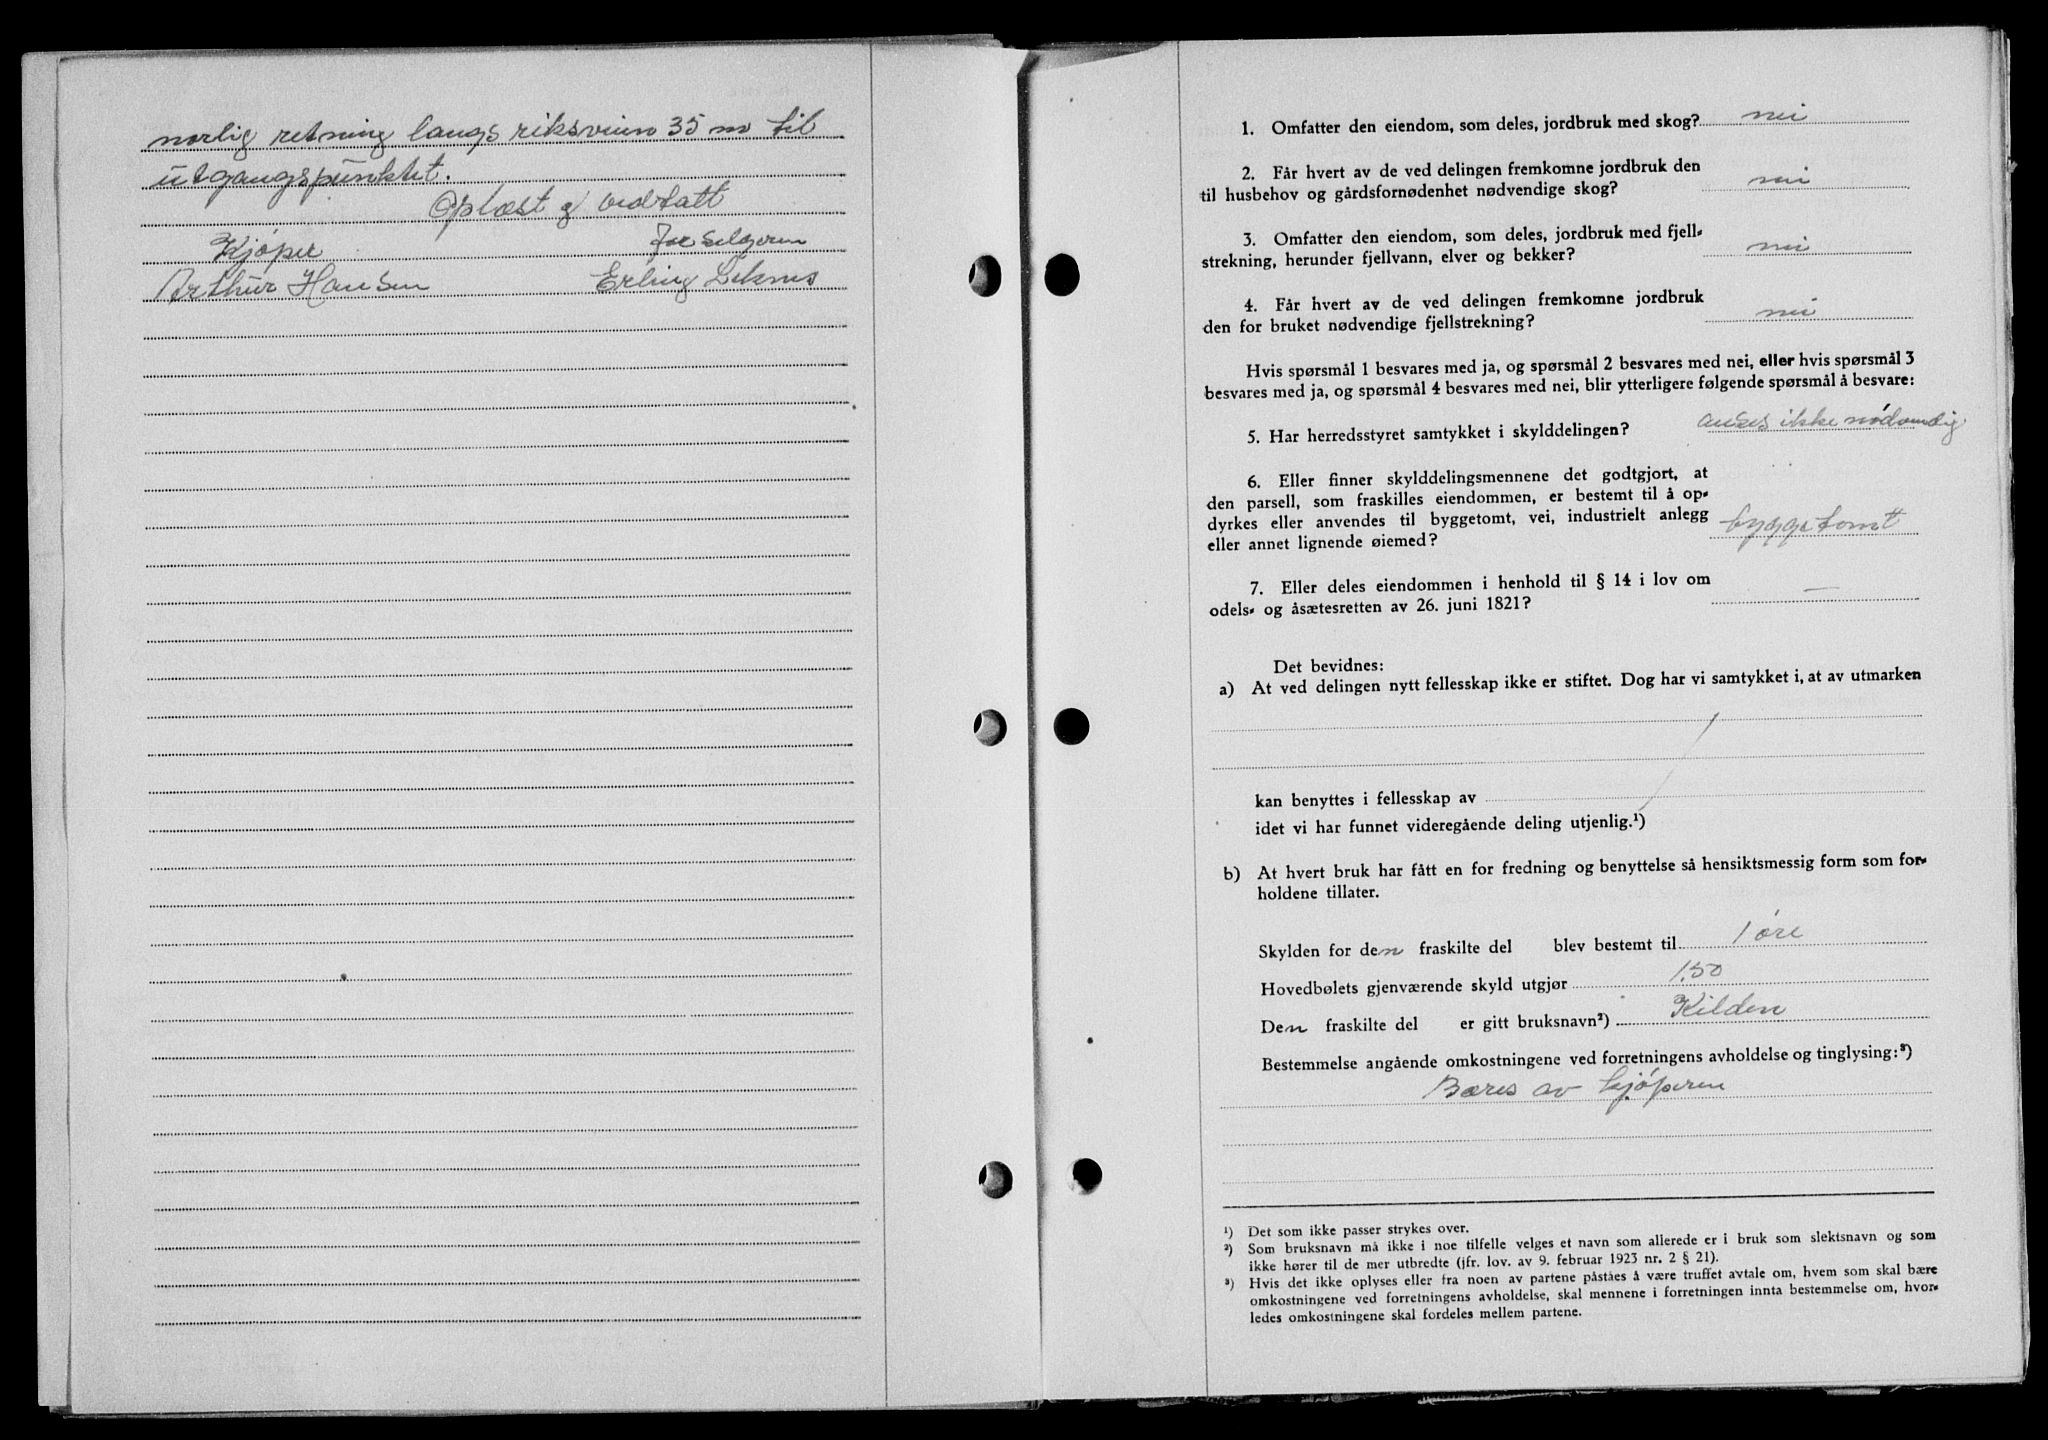 norlig retning langs riksveien 35 m til
utgangspunktet.
Oplæst og vedtatt
Kjøper
for selgeren
Arthur Hansen
Erling Leknes
1. Omfatter den eiendom, som deles, jordbruk med skog? nei
2. Får hvert av de ved delingen fremkomne jordbruk den
til husbehov og gårdsfornødenhet nødvendige skog? nei
3. Omfatter den eiendom, som deles, jordbruk med fjell-
strekning, herunder fjellvann, elver og bekker? nei
4. Får hvert av de ved delingen fremkomne jordbruk
den for bruket nødvendige fjellstrekning? nei
Hvis spørsmål 1 besvares med ja, og spørsmål 2 besvares med nei, eller hvis spørsmål 3
besvares med ja, og spørsmål 4 besvares med nei, blir ytterligere følgende spørsmål å besvare:
5. Har herredsstyret samtykket i skylddelingen? anses ikke nødvendig
6. Eller finner skylddelingsmennene det godtgjort, at
den parsell, som fraskilles eiendommen, er bestemt til å op-
dyrkes eller anvendes til byggetomt, vei, industrielt anlegg
eller annet lignende øiemed? byggetomt
7. Eller deles eiendommen i henhold til § 14 i lov om
odels- og åsætesretten av 26. juni 1821? —
Det bevidnes:
a) At ved delingen nytt fellesskap ikke er stiftet. Dog har vi samtykket i, at av utmarken
kan benyttes i fellesskap av
idet vi har funnet videregående deling utjenlig.¹)
b) At hvert bruk har fått en for fredning og benyttelse så hensiktsmessig form som for-
holdene tillater.
Skylden for den fraskilte del blev bestemt til 1 øre
Hovedbølets gjenværende skyld utgjør 1.50
Den fraskilte del er gitt bruksnavn²) Kilden
Bestemmelse angående omkostningene ved forretningens avholdelse og tinglysing:³)
Bæres av kjøperen
¹) Det som ikke passer strykes over.
²) Som bruksnavn må ikke i noe tilfelle velges et navn som allerede er i bruk som slektsnavn og som
ikke hører til de mer utbredte (jfr. lov. av 9. februar 1923 nr. 2 § 21).
³) Hvis det ikke oplyses eller fra noen av partene påståes å være truffet avtale om, hvem som skal bære
omkostningene ved forretningens avholdelse, skal mennene i forretningen innta bestemmelse om, hvor-
ledes omkostningene skal fordeles mellem partene.